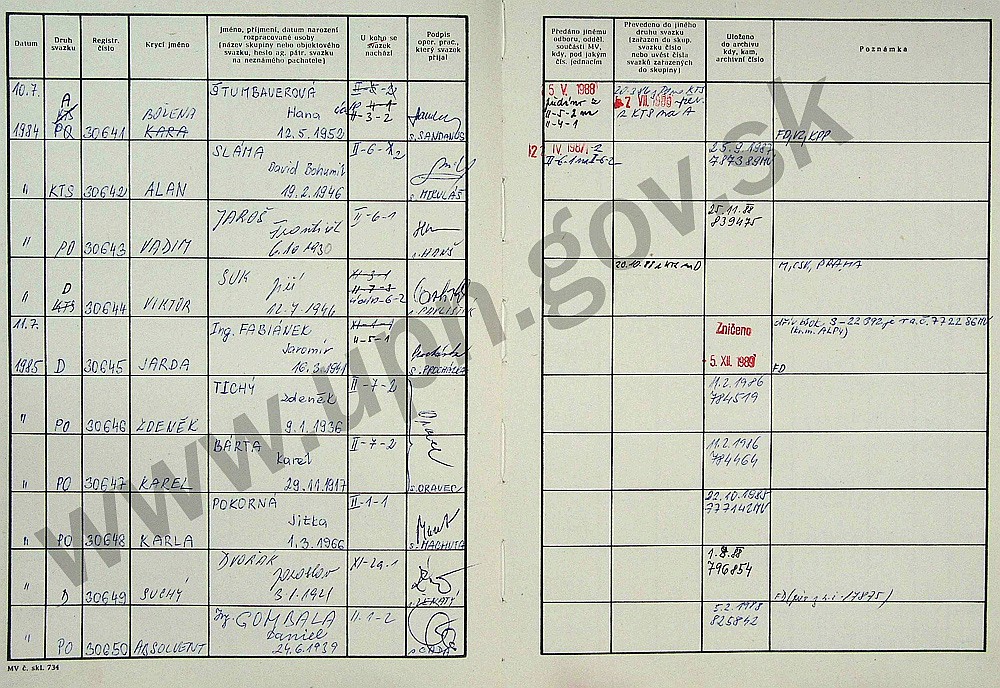 Datum
Druh svazku
Registr. číslo
Krycí jméno
Jméno, příjmení, datum narození
rozpracované osoby
(název skupiny nebo objektového
svazku, heslo ag. pátr. svazku
na neznámého pachatele)
U koho se
svazek
nachází
Podpis
oper. prac.,
který svazek
přijal
Předáno jinému
odboru, odděl.
součásti MV,
kdy, pod jakým
čís. jednacím
Převedeno do jiného
druhu svazku
(zařazen do skup.
svazku číslo
nebo uvést čísla
svazků zařazených
do skupiny)
Uloženo
do archivu
kdy, kam,
archivní číslo
Poznámka
10.7.
1984
A
KTS
PO
30641
BOŽENA
KARA
ŠTUMBAUEROVÁ
Hana
12.5.1952
II-3-2
s. SANDANUS
5. V. 1988
II-5-2
II-4-1
7 VII. 1989
z KTS na A
FD, VZ, KPP
"
KTS
30642
ALAN
SLÁMA
David Bohumil
19.2.1946
II-6-2
s. MIKULÁŠ
IV. 1987
25.9.1987
787389MV
"
PO
30643
VADIM
JAROŠ
František
6.10.1930
II-6-1
s. HANŠ
25.11.88
839475
"
D
KTS
30644
VIKTOR
SUK
Jiří
12.7.1946
XI-3-1
II-7-3
20.10.88 z KTS na D
M, ČSK, PRAHA
11.7.
1985
D
30645
JARDA
Ing. FABIÁNEK
Jaromír
16.3.1941
XI-1-1
II-5-1
s. PROCHÁZKA
Zničeno
5. XII. 1989
FD
"
PO
30646
ZDENĚK
TICHÝ
Zdeněk
9.1.1936
II-7-2
11.2.1986
784519
"
PO
30647
KAREL
BÁRTA
Karel
29.11.1917
II-7-2
s. ORAVEC
11.2.1986
784464
"
PO
30648
KARLA
POKORNÁ
Jitka
1.3.1966
II-1-1
s. MACHUTA
22.10.1985
777142MV
"
D
30649
SUCHÝ
DVOŘÁK
Jaroslav
3.1.1921
XI-2a.1
796854
"
PO
30650
ABSOLVENT
Ing. GOMBALA
Daniel
24.6.1939
II-1-2
5.2.1988
825842
MV č. skl. 734
www.upn.gov.sk